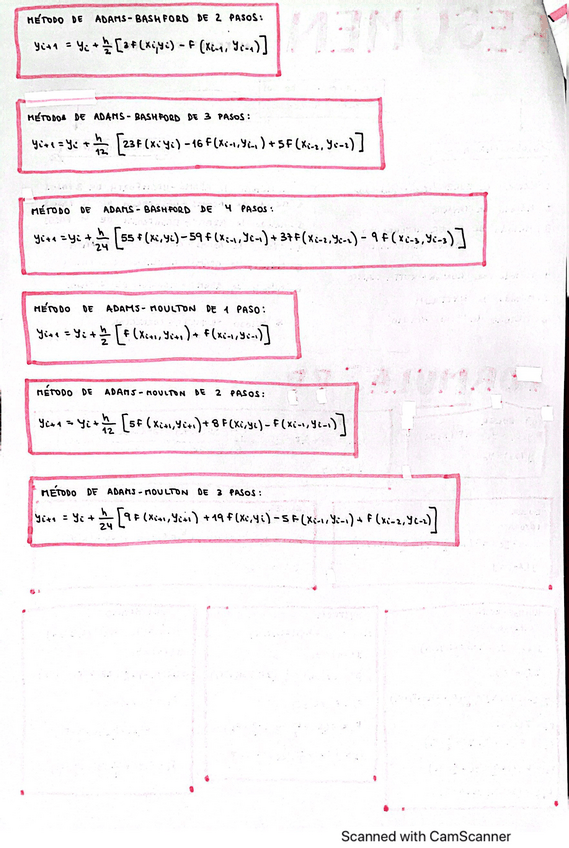 MÉTODO DE ADAMS-BASHFORD DE 2 PASOS:
yi+1 = yi + h/2 [3f(xi,yi) - f(xi-1, yi-1)]
MÉTODOS DE ADAMS-BASHFORD DE 3 PASOS:
yi+1 = yi + h/12 [23f(xi yi) - 16 f(xi-1,yi-1) + 5f(xi-2, yi-2)]
MÉTODO DE ADAMS-BASHFORD DE 4 PASOS:
yi+1 = yi + h/24 [55 f(xi,yi) - 59 f(xi-1,yi-1) + 37f(xi-2,yi-2) - 9 f(xi-3,yi-3)]
MÉTODO DE ADAMS-MOULTON DE 1 PASO:
yi+1 = yi + h/2 [f(xi+1,yi+1) + f(xi-1,yi-1)]
MÉTODO DE ADAMS-MOULTON DE 2 PASOS:
yi+1 = yi + h/12 [5f(xi+1,yi+1) + 8f(xi,yi) - f(xi-1,yi-1)]
MÉTODO DE ADAMS-MOULTON DE 3 PASOS:
yi+1 = yi + h/24 [9 f(xi+1,yi+1) + 19 f(xi,yi) - 5 f(xi-1,yi-1) + f(xi-2,yi-2)]
Scanned with CamScanner